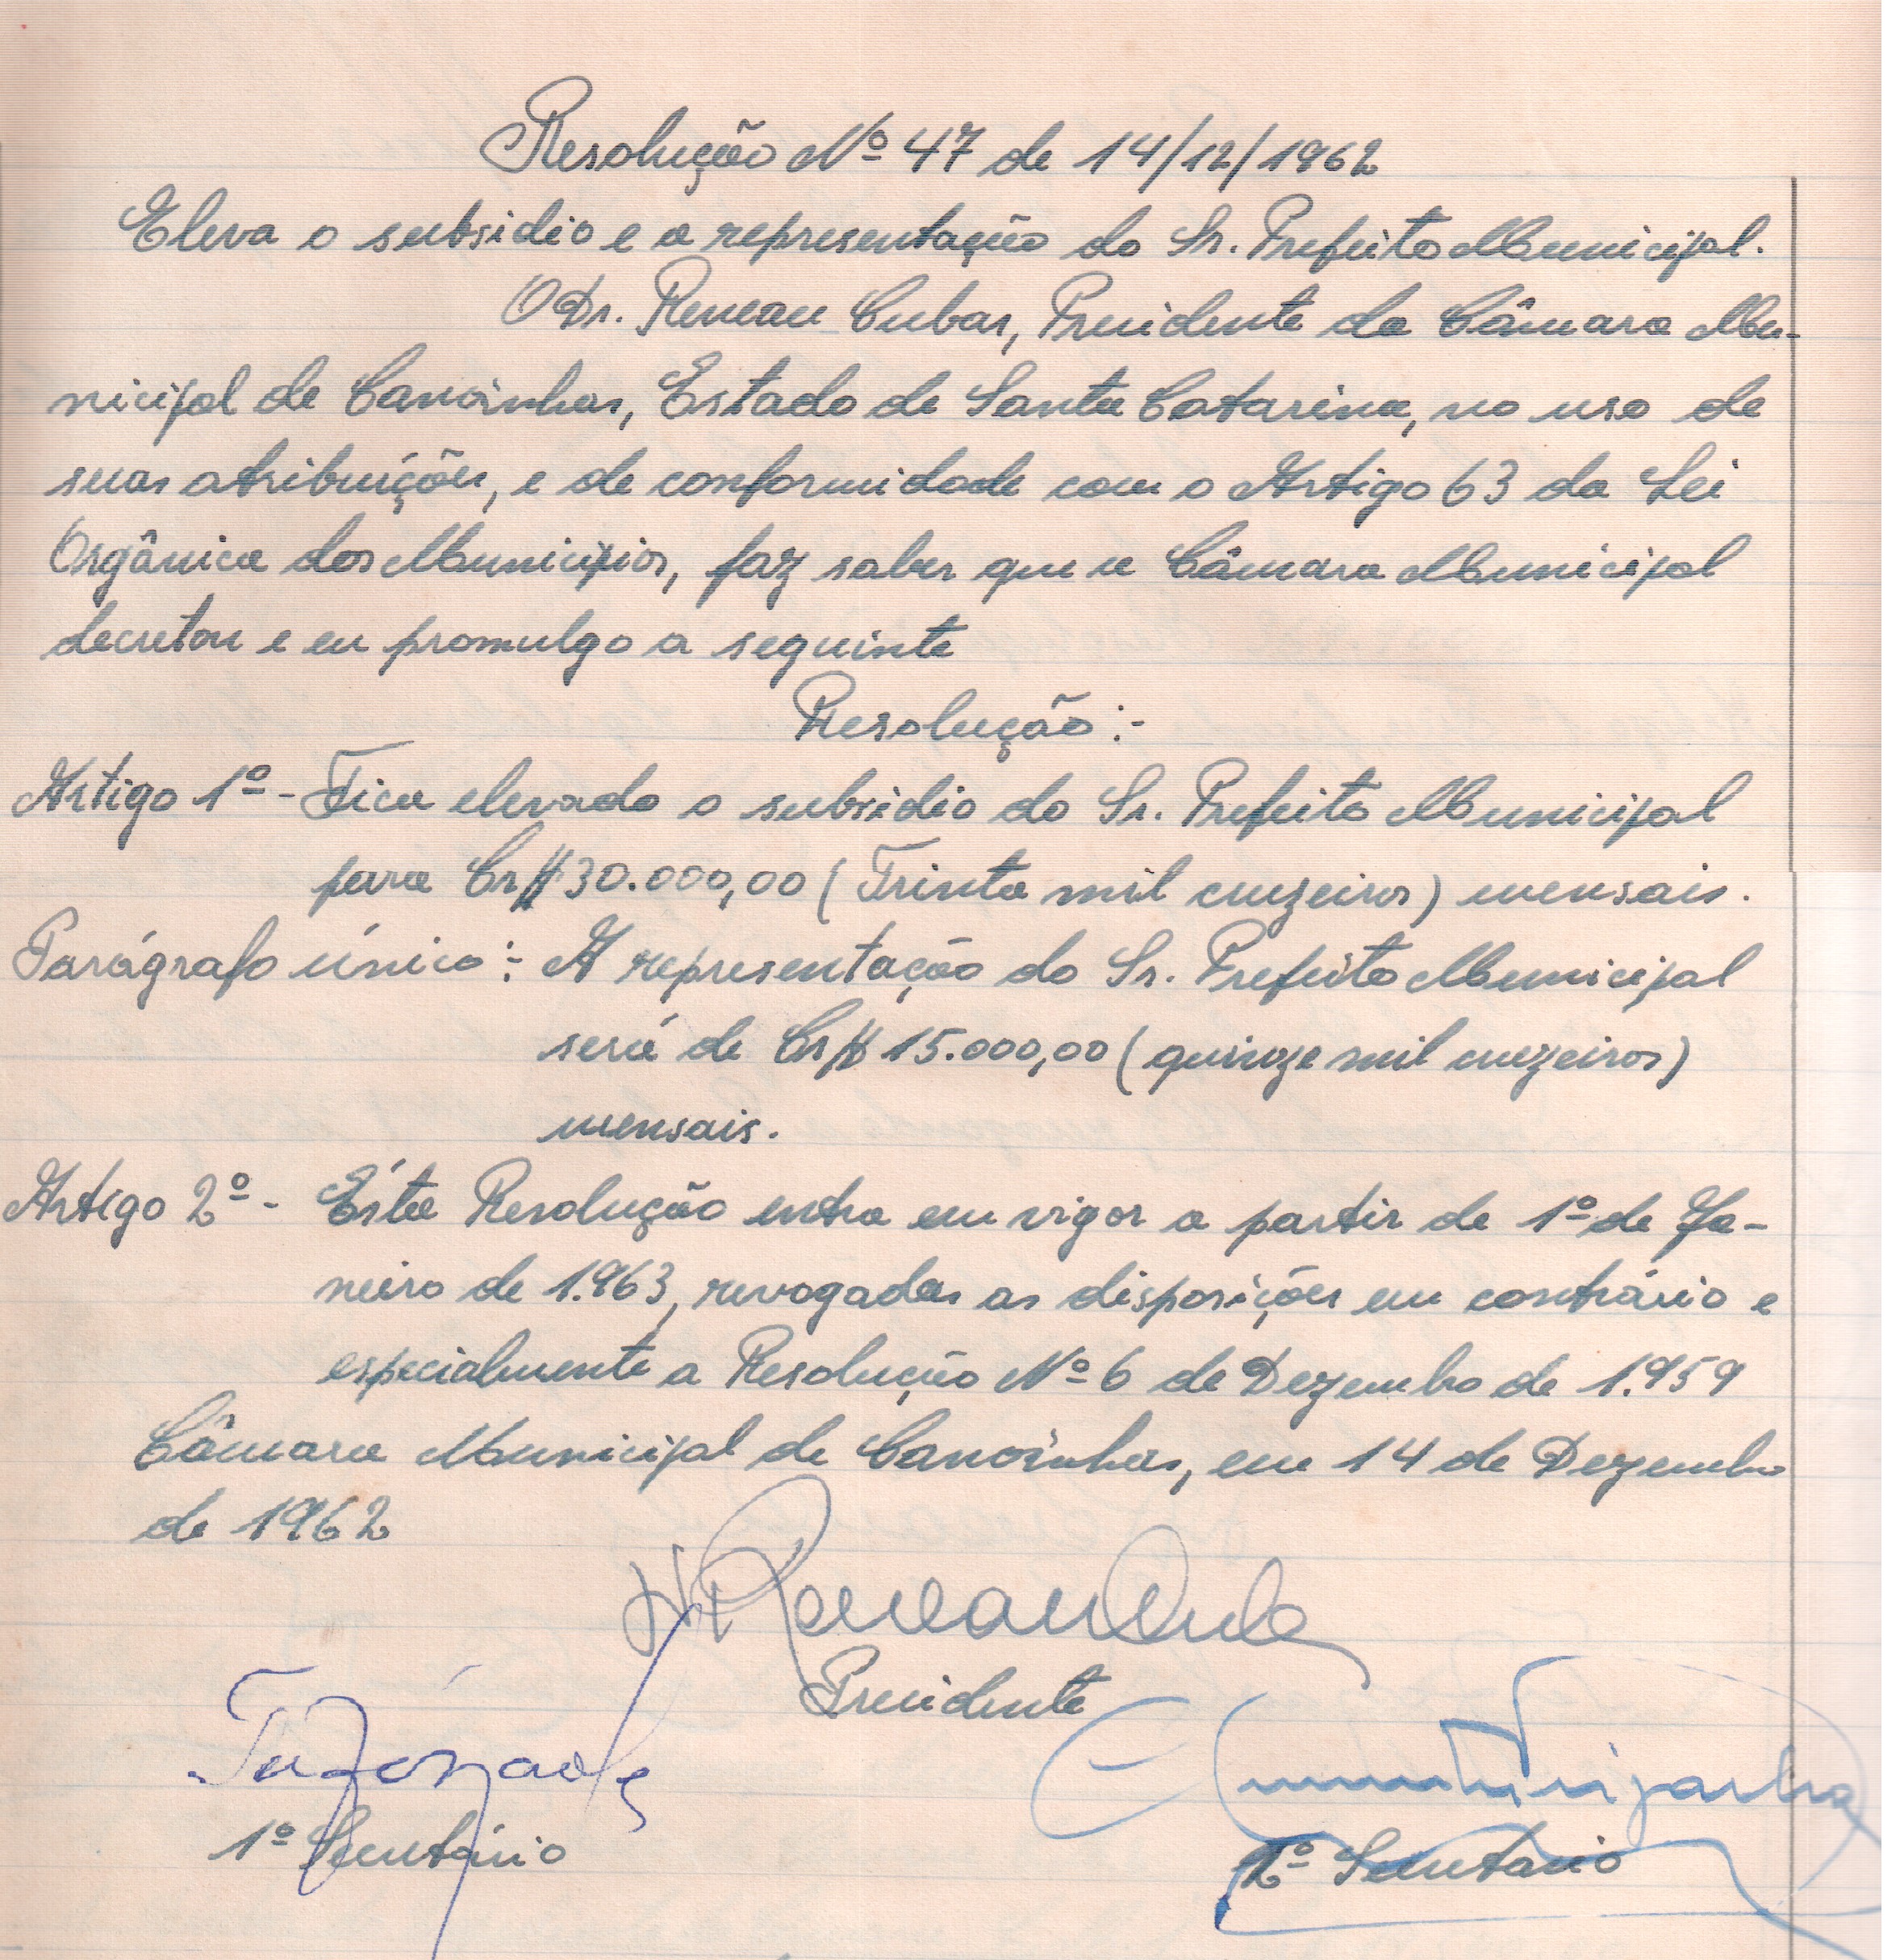 Resolução Nº 47 de 14/12/1962
Eleva o subsidio e a representação do Sr. Prefeito Municipal.
O Dr. Reneau Cubas, Presidente da Câmara Mu-
nicipal de Canoinhas, Estado de Santa Catarina, no uso de
suas atribuições, e de conformidade com o Artigo 63 da Lei
Orgânica dos Municípios, faz saber que a Câmara Municipal
decretou e eu promulgo a seguinte
Resolução :-
Artigo 1º - Fica elevado o subsidio do Sr. Prefeito Municipal
para Cr$ 30.000,00 (Trinta mil cruzeiros) mensais.
Parágrafo único :- A representação do Sr. Prefeito Municipal
será de Cr$ 15.000,00 (quinze mil cruzeiros)
mensais.
Artigo 2º - Ésta Resolução entra em vigor a partir de 1º de Ja-
neiro de 1.963, revogadas as disposições em contrário e
especialmente a Resolução Nº 6 de Dezembro de 1.959
Câmara Municipal de Canoinhas, em 14 de Dezembro
de 1962
Presidente
1º Secretário
2º Secretario